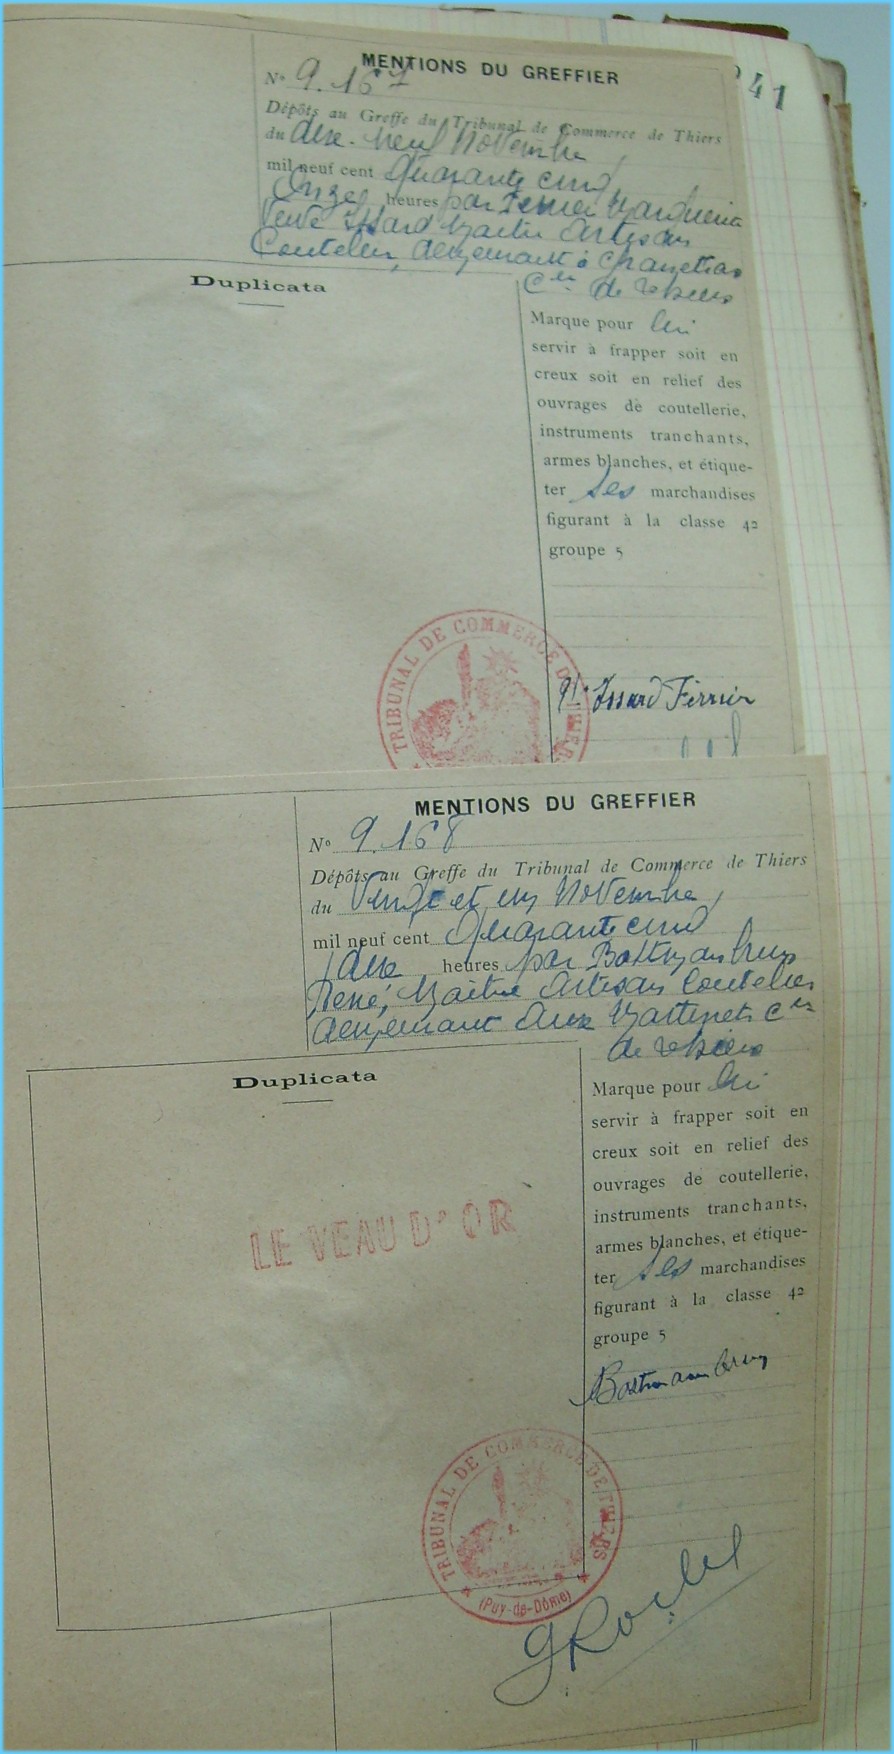 241
MENTIONS DU GREFFIER
N° 9.167
Dépôts au Greffe du Tribunal de Commerce de Thiers
du dix-neuf Novembre
mil neuf cent Quarante cinq
Onze heures par Ferrier Marguerite
Veuve Issard Maitre Artisan
Coutelier, demeurant à
Cne de Thiers
Duplicata
Marque pour lui
servir à frapper soit en
creux soit en relief des
ouvrages de coutellerie,
instruments tranchants,
armes blanches, et étique-
ter ses marchandises
figurant à la classe 42
groupe 5
TRIBUNAL DE COMMERCE DE THIERS
Issard Ferrier
MENTIONS DU GREFFIER
N° 9.168
Dépôts au Greffe du Tribunal de Commerce de Thiers
du Vingt et un Novembre
mil neuf cent Quarante cinq
dix heures par
René, Maitre Artisan Coutelier
demeurant Aux Martinets Cne
de Thiers
Duplicata
Marque pour lui
servir à frapper soit en
creux soit en relief des
ouvrages de coutellerie,
instruments tranchants,
armes blanches, et étique-
ter ses marchandises
figurant à la classe 42
groupe 5
LE VEAU D'OR
TRIBUNAL DE COMMERCE DE THIERS
(Puy-de-Dôme)